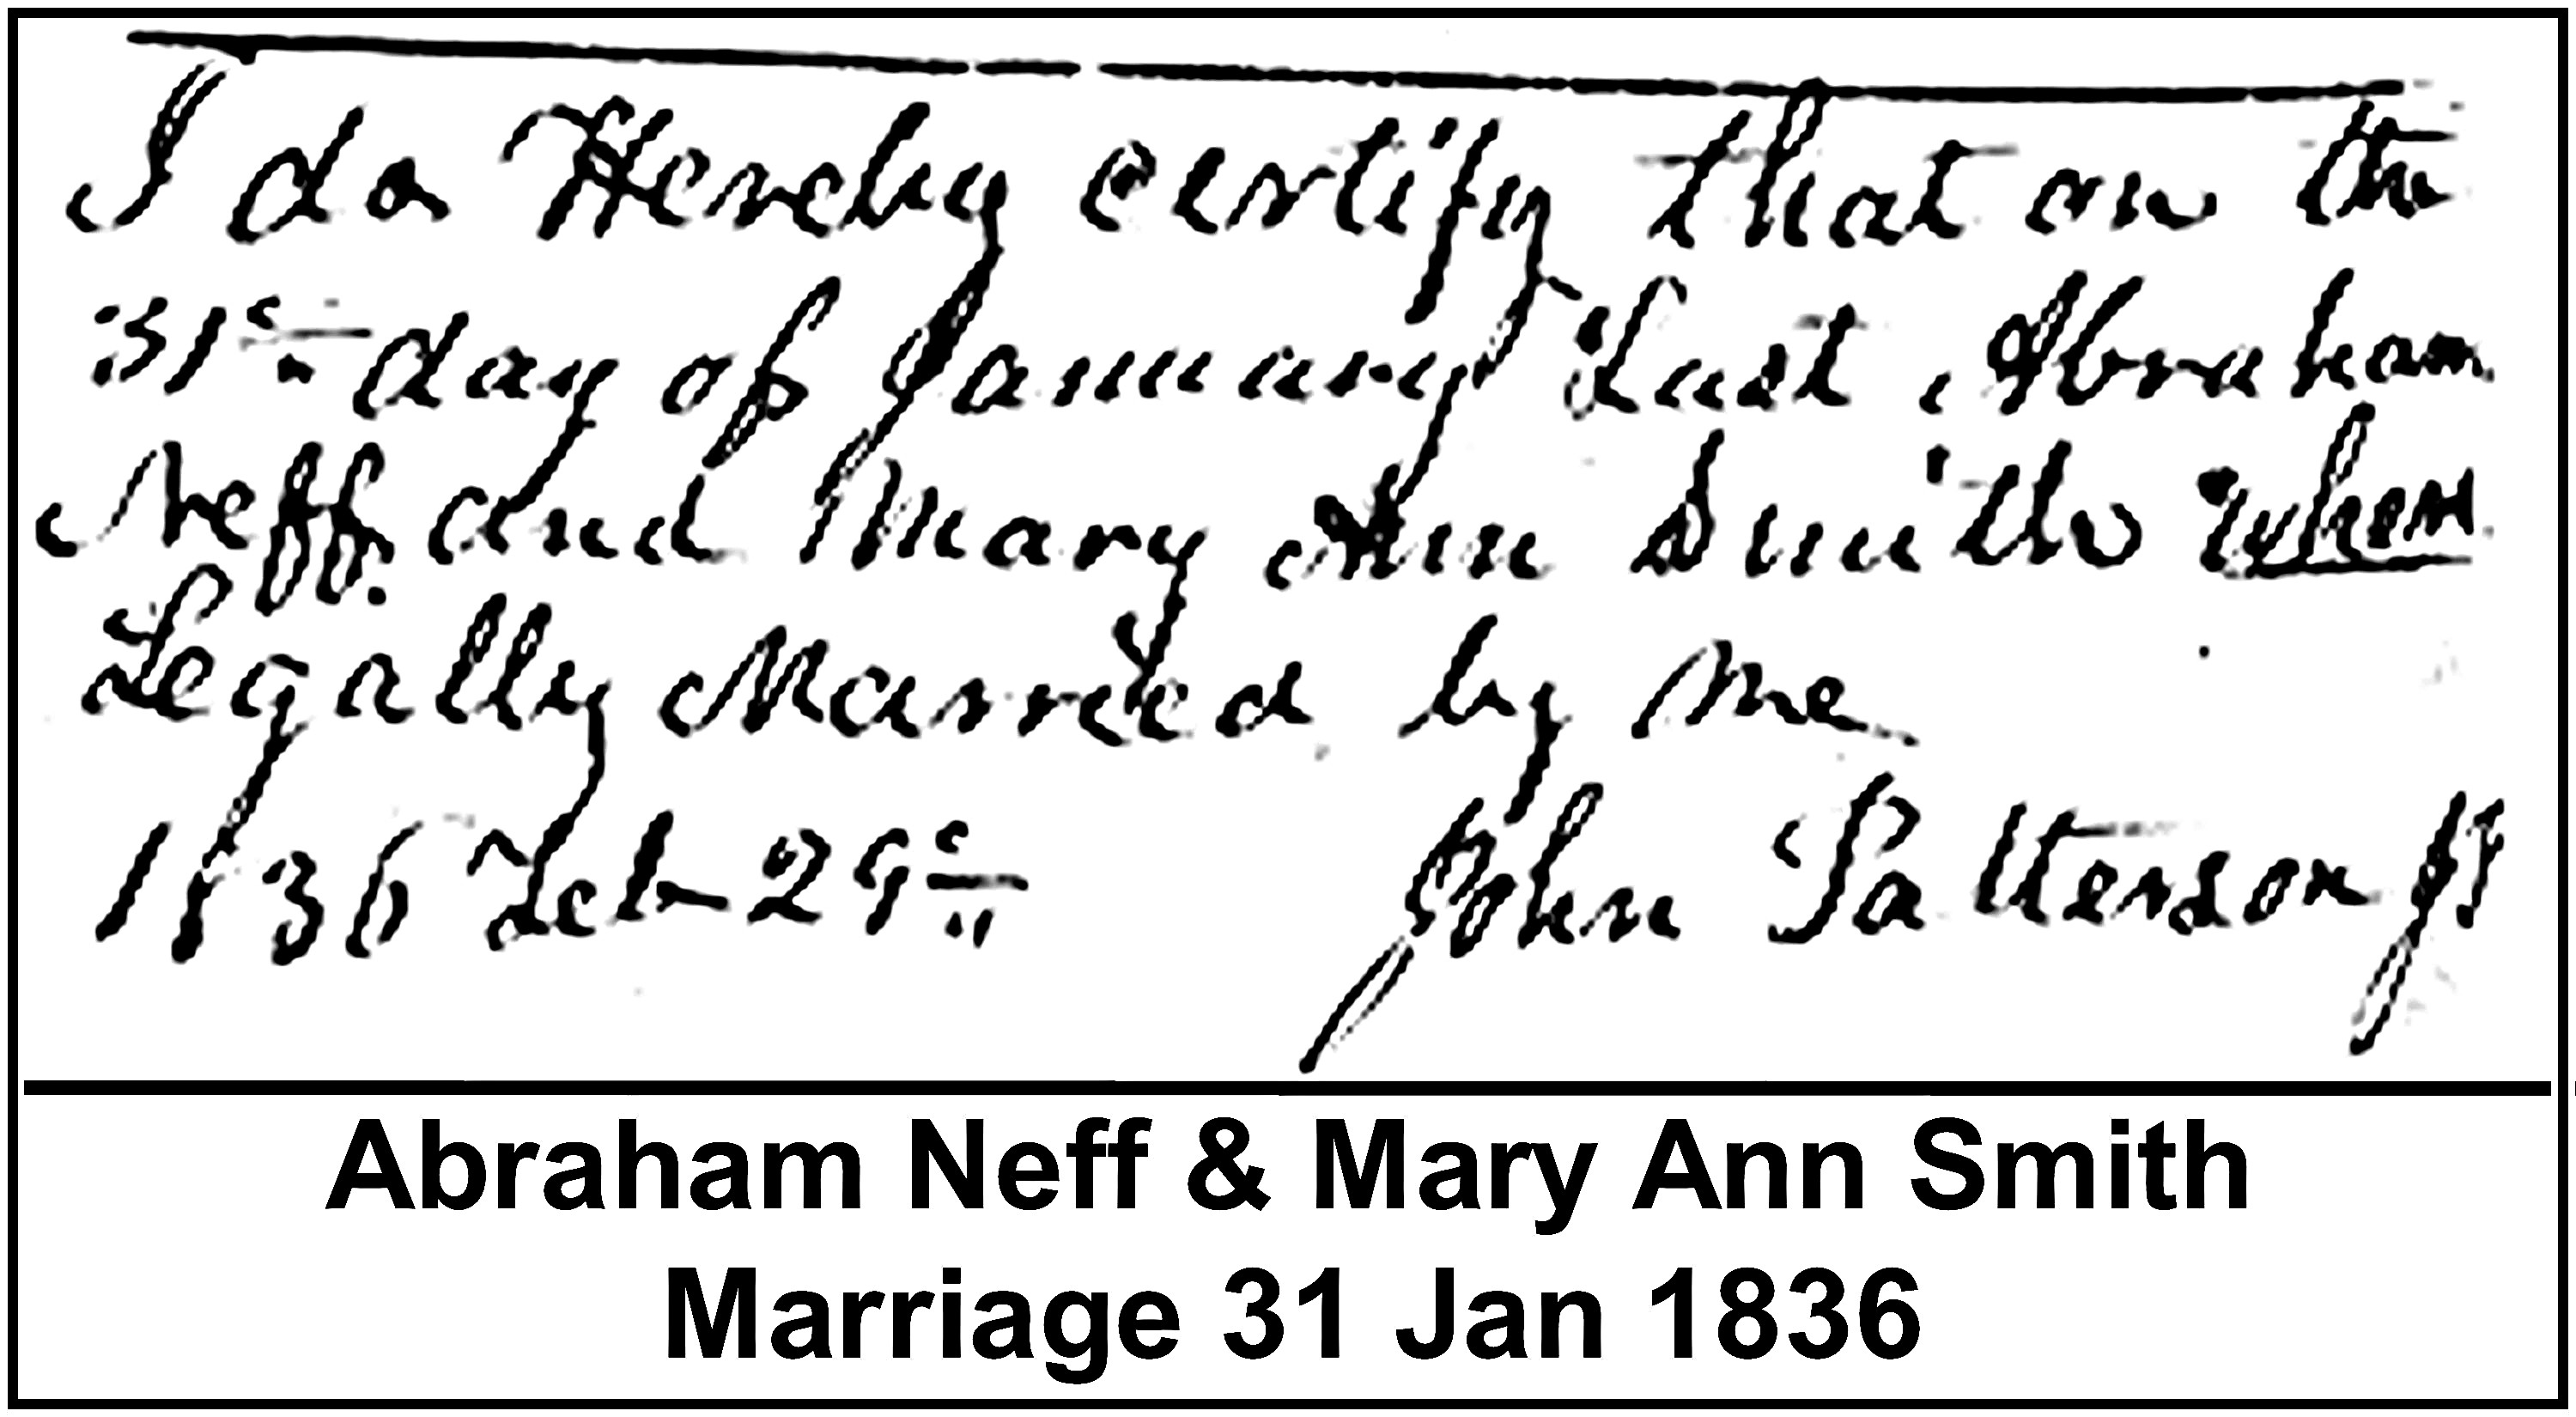 I do Hereby certify that on the
31st day of January Last, Abraham
Neff. and Mary Ann Smith when
Legally Married by me
1836 Feb 29th John Patterson JP
Abraham Neff & Mary Ann Smith
Marriage 31 Jan 1836